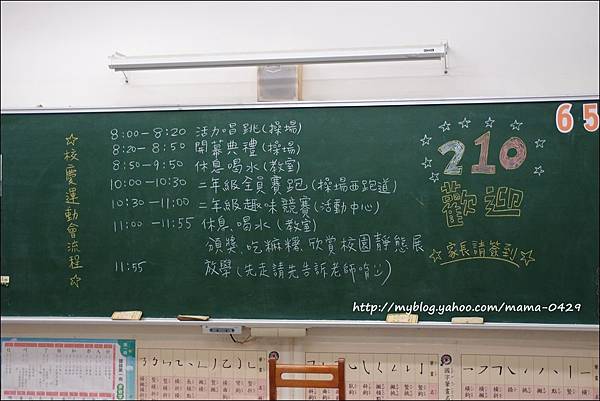 ☆校慶運動會流程☆
8:00-8:20 活力唱跳(操場)
8:20-8:50 開幕典禮(操場)
8:50-9:50 休息喝水(教室)
10:00-10:30 二年級全員賽跑(操場西跑道)
10:30-11:00 二年級趣味競賽(活動中心)
11:00-11:55 休息、喝水(教室)
頒獎、吃麻糬、欣賞校園靜態展
11:55 放學(先走請先告訴老師唷)
210
歡迎
☆家長請簽到☆
65
http://myblog.yahoo.com/mama-0429